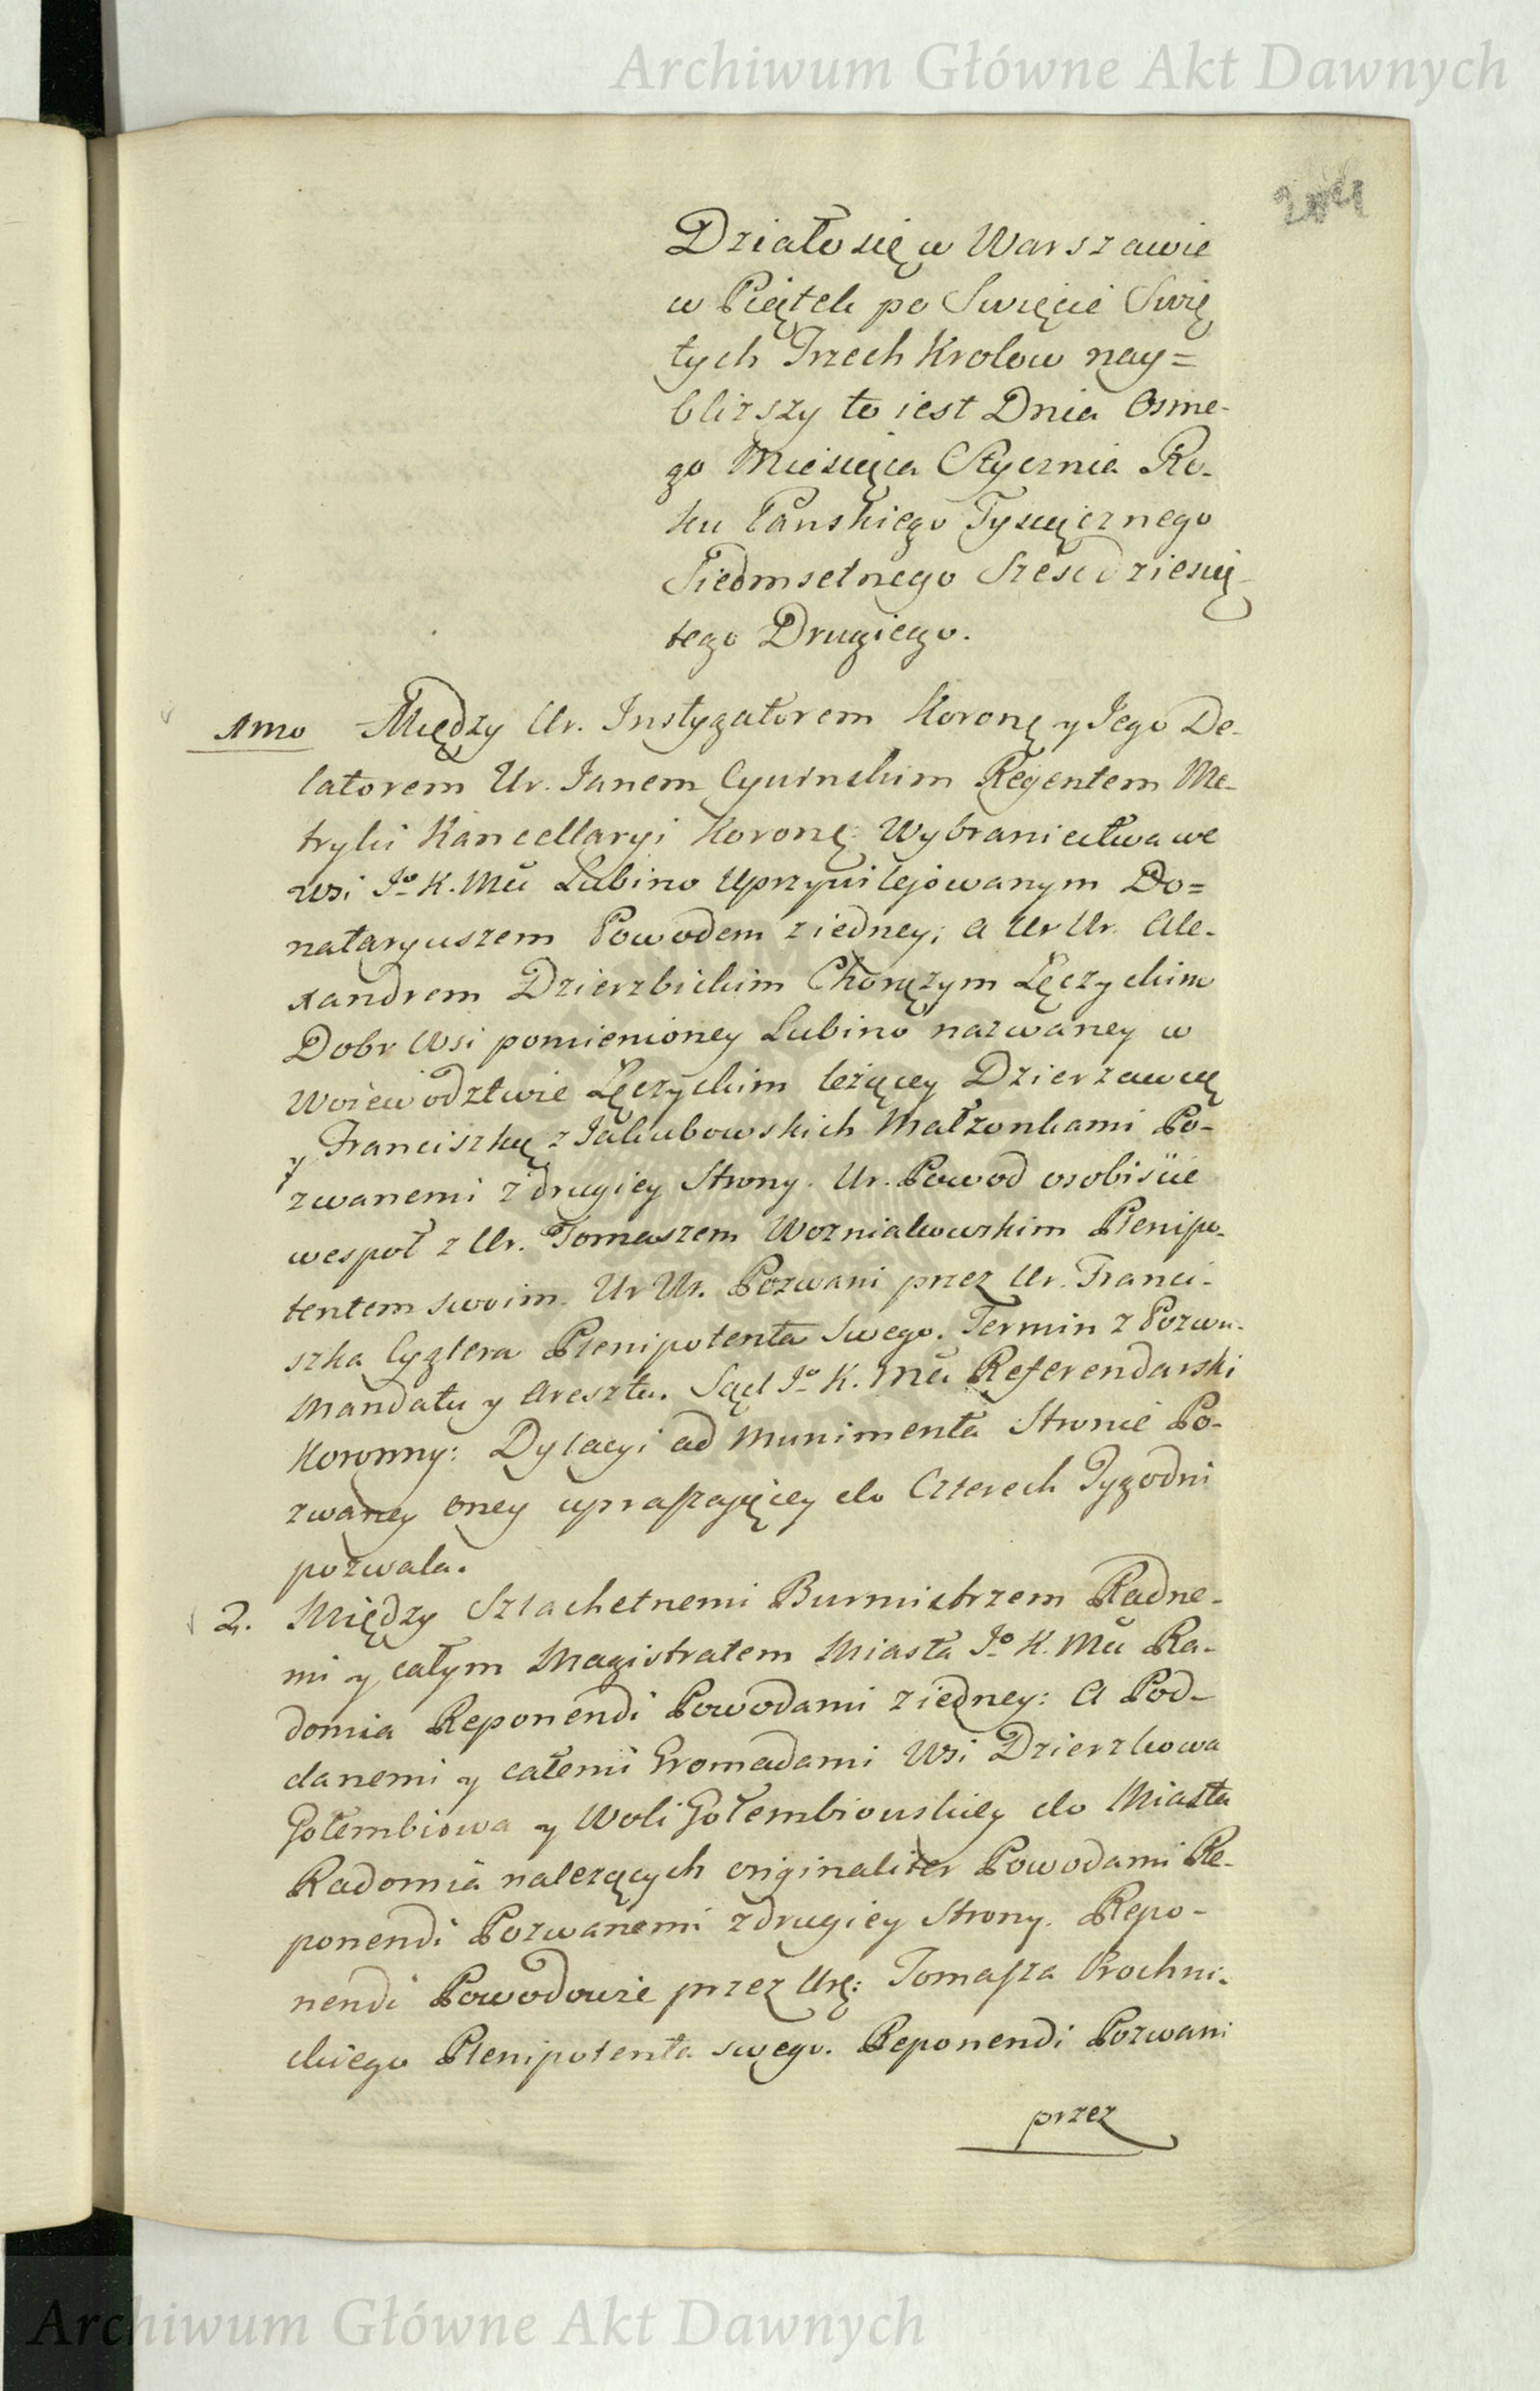 Archiwum Główne Akt Dawnych
Działo się w Warszawie
w Piętek po Swięcie Swię
tych Trzech Krolow nay=
blizszy to iest Dnia Osme-
go Miesięca Stycznia Ro-
ku Panskiego Tysięcznego
Siedmsetnego Szescdziesię-
tego Drugiego.
1mo Między Ur. Instygatorem Koronę y Jego De-
latorem Ur. Janem Cywinskim Regentem Me-
tryki Kancellaryi Koronę: Wybraniectwa we
wsi Jº K. Mci Lubino Uprzywilejowanym Do=
nataryuszem Powodem z iedney; a Ur Ur. Ale-
xandrem Dzierzbickim Chorązym Łęczyckim
Dobr Wsi pomienioney Lubino nazwaney w
Woiewodztwie Łęczyckim lezącey Dzierzawcą
y Franciszką z Jakubowskich Małzonkami Po-
zwanemi z drugiey Strony. Ur. Powod osobiscie
wespoł z Ur. Tomaszem Wozniakowskim Plenipo-
tentem swoim. Ur Ur. Pozwani przez Ur. Franci-
szka Cyglera Plenipotenta Swego. Termin z Pozwu
Mandatu y Aresztu. Sąd Jº K. Mci Referendarski
Koronny: Dylacyi ad Munimenta Stronie Po-
zwaney oney upraszaiącey do Czterech Tygodni
pozwala.
2. Między Szlachetnemi Burmistrzem Radne-
mi y całym Magistratem Miasta Jº K. Mci Ra-
domia Reponendi Powodami z iedney: a Pod-
danemi y całemi Gromadami Wsi Dzierzkowa
Gołembiowa y Woli Gołembiouskiey do Miasta
Radomia nalezących originaliter Powodami Re-
ponendi Pozwanemi z drugiey Strony. Repo-
nendi Powodowie przez Urę: Tomasza Prochni-
ckiego Plenipotenta swego. Reponendi Pozwani
przez
Archiwum Główne Akt Dawnych